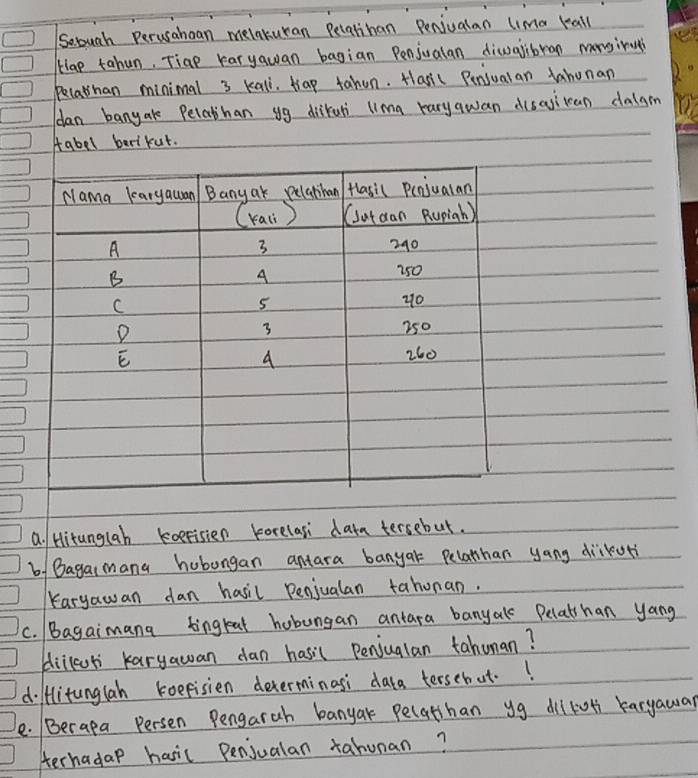 Sebuah Perusahaan melakukan Pelatihan Penjualan lima kali
tiap tahun. Tiap karyawan bagian Penjualan diwajibkan mengikuti
Pelatihan minimal 3 kali. tiap tahun. Hasil Penjualan tahunan
dan banyak Pelatihan yg diikuti lima karyawan disajikan dalam
tabel berikut.
Nama karyawan Banyak pelatihan Hasil Penjualan
(kali) (Jutaan Rupiah)
A 3 240
B 4 250
C 5 270
D 3 250
E 4 260
a. Hitunglah koefisien korelasi data tersebut.
b. Bagaimana hubungan antara banyak Pelatihan yang diikuti
karyawan dan hasil Penjualan tahunan.
c. Bagaimana tingkat hubungan antara banyak Pelatihan yang
diikuti karyawan dan hasil Penjualan tahunan?
d. Hitunglah koefisien determinasi data tersebut. !
e. Berapa Persen Pengaruh banyak Pelatihan yg diikuti karyawan
terhadap hasil Penjualan tahunan?